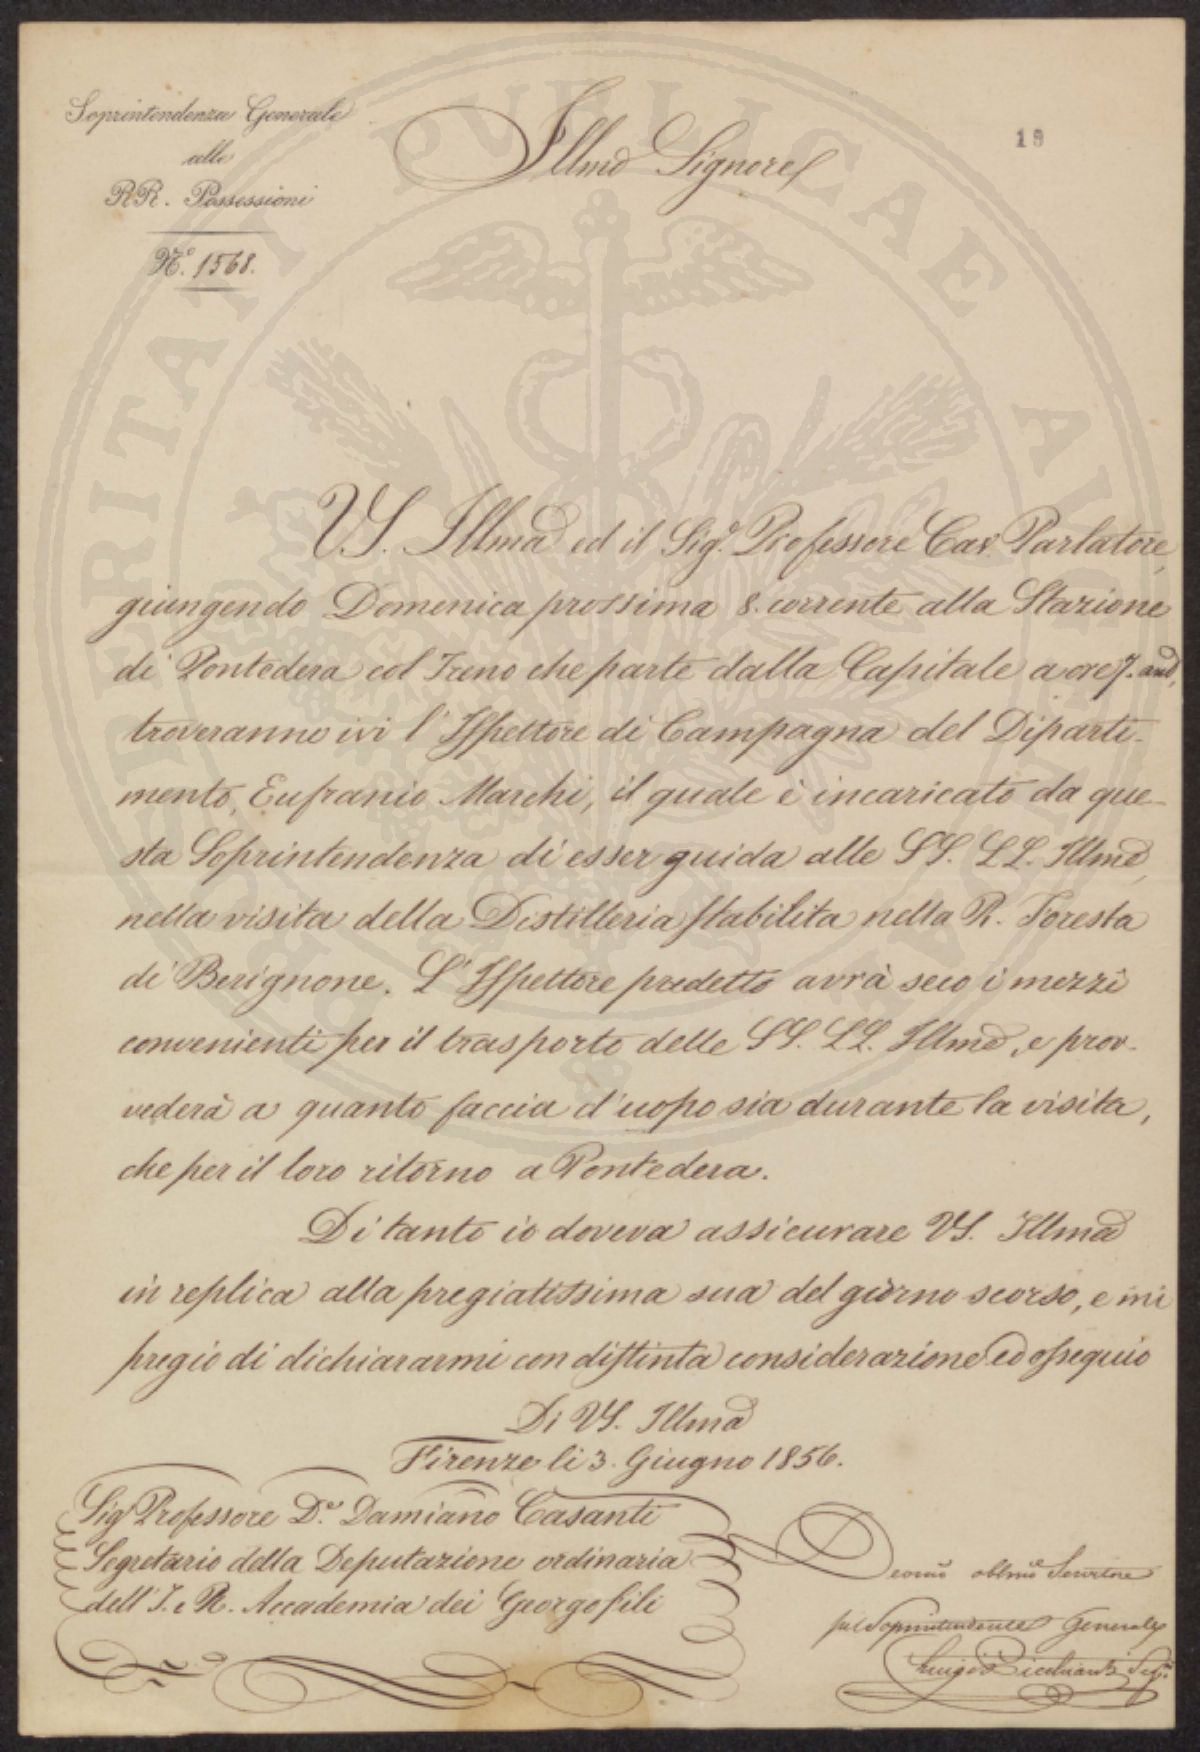 Soprintendenza Generale
alle
RR. Possessioni
N.° 1568.
Illmo Signore
19
PROSPERITATI PUBLICAE AUGENDAE
VS. Illma ed il Sig.r Professore Cav. Parlatore,
giungendo Domenica prossima 8. corrente alla Stazione
di Pontedera col Treno che parte dalla Capitale a ore 7. and,
troveranno ivi l'Ispettore di Campagna del Diparti-
mento, Eufranio Marchi, il quale è incaricato da que-
sta Soprintendenza di esser guida alle SS. LL. Illme,
nella visita della Distilleria stabilita nella R. Foresta
di Berignone. L'Ispettore predetto avrà seco i mezzi
convenienti per il trasporto delle SS. LL. Illme, e prov-
vederà a quanto faccia d'uopo sia durante la visita,
che per il loro ritorno a Pontedera.
Di tanto io doveva assicurare VS. Illma
in replica alla pregiatissima sua del giorno scorso, e mi
pregio di dichiararmi con distinta considerazione ed ossequio
Di VS. Illma
Firenze li 3. Giugno 1856.
Sig. Professore D.r Damiano Casanti
Segretario della Deputazione ordinaria
dell'I. e R. Accademia dei Georgofili
Devmo oblmo Servitore
pel Soprintendente Generale
Luigi